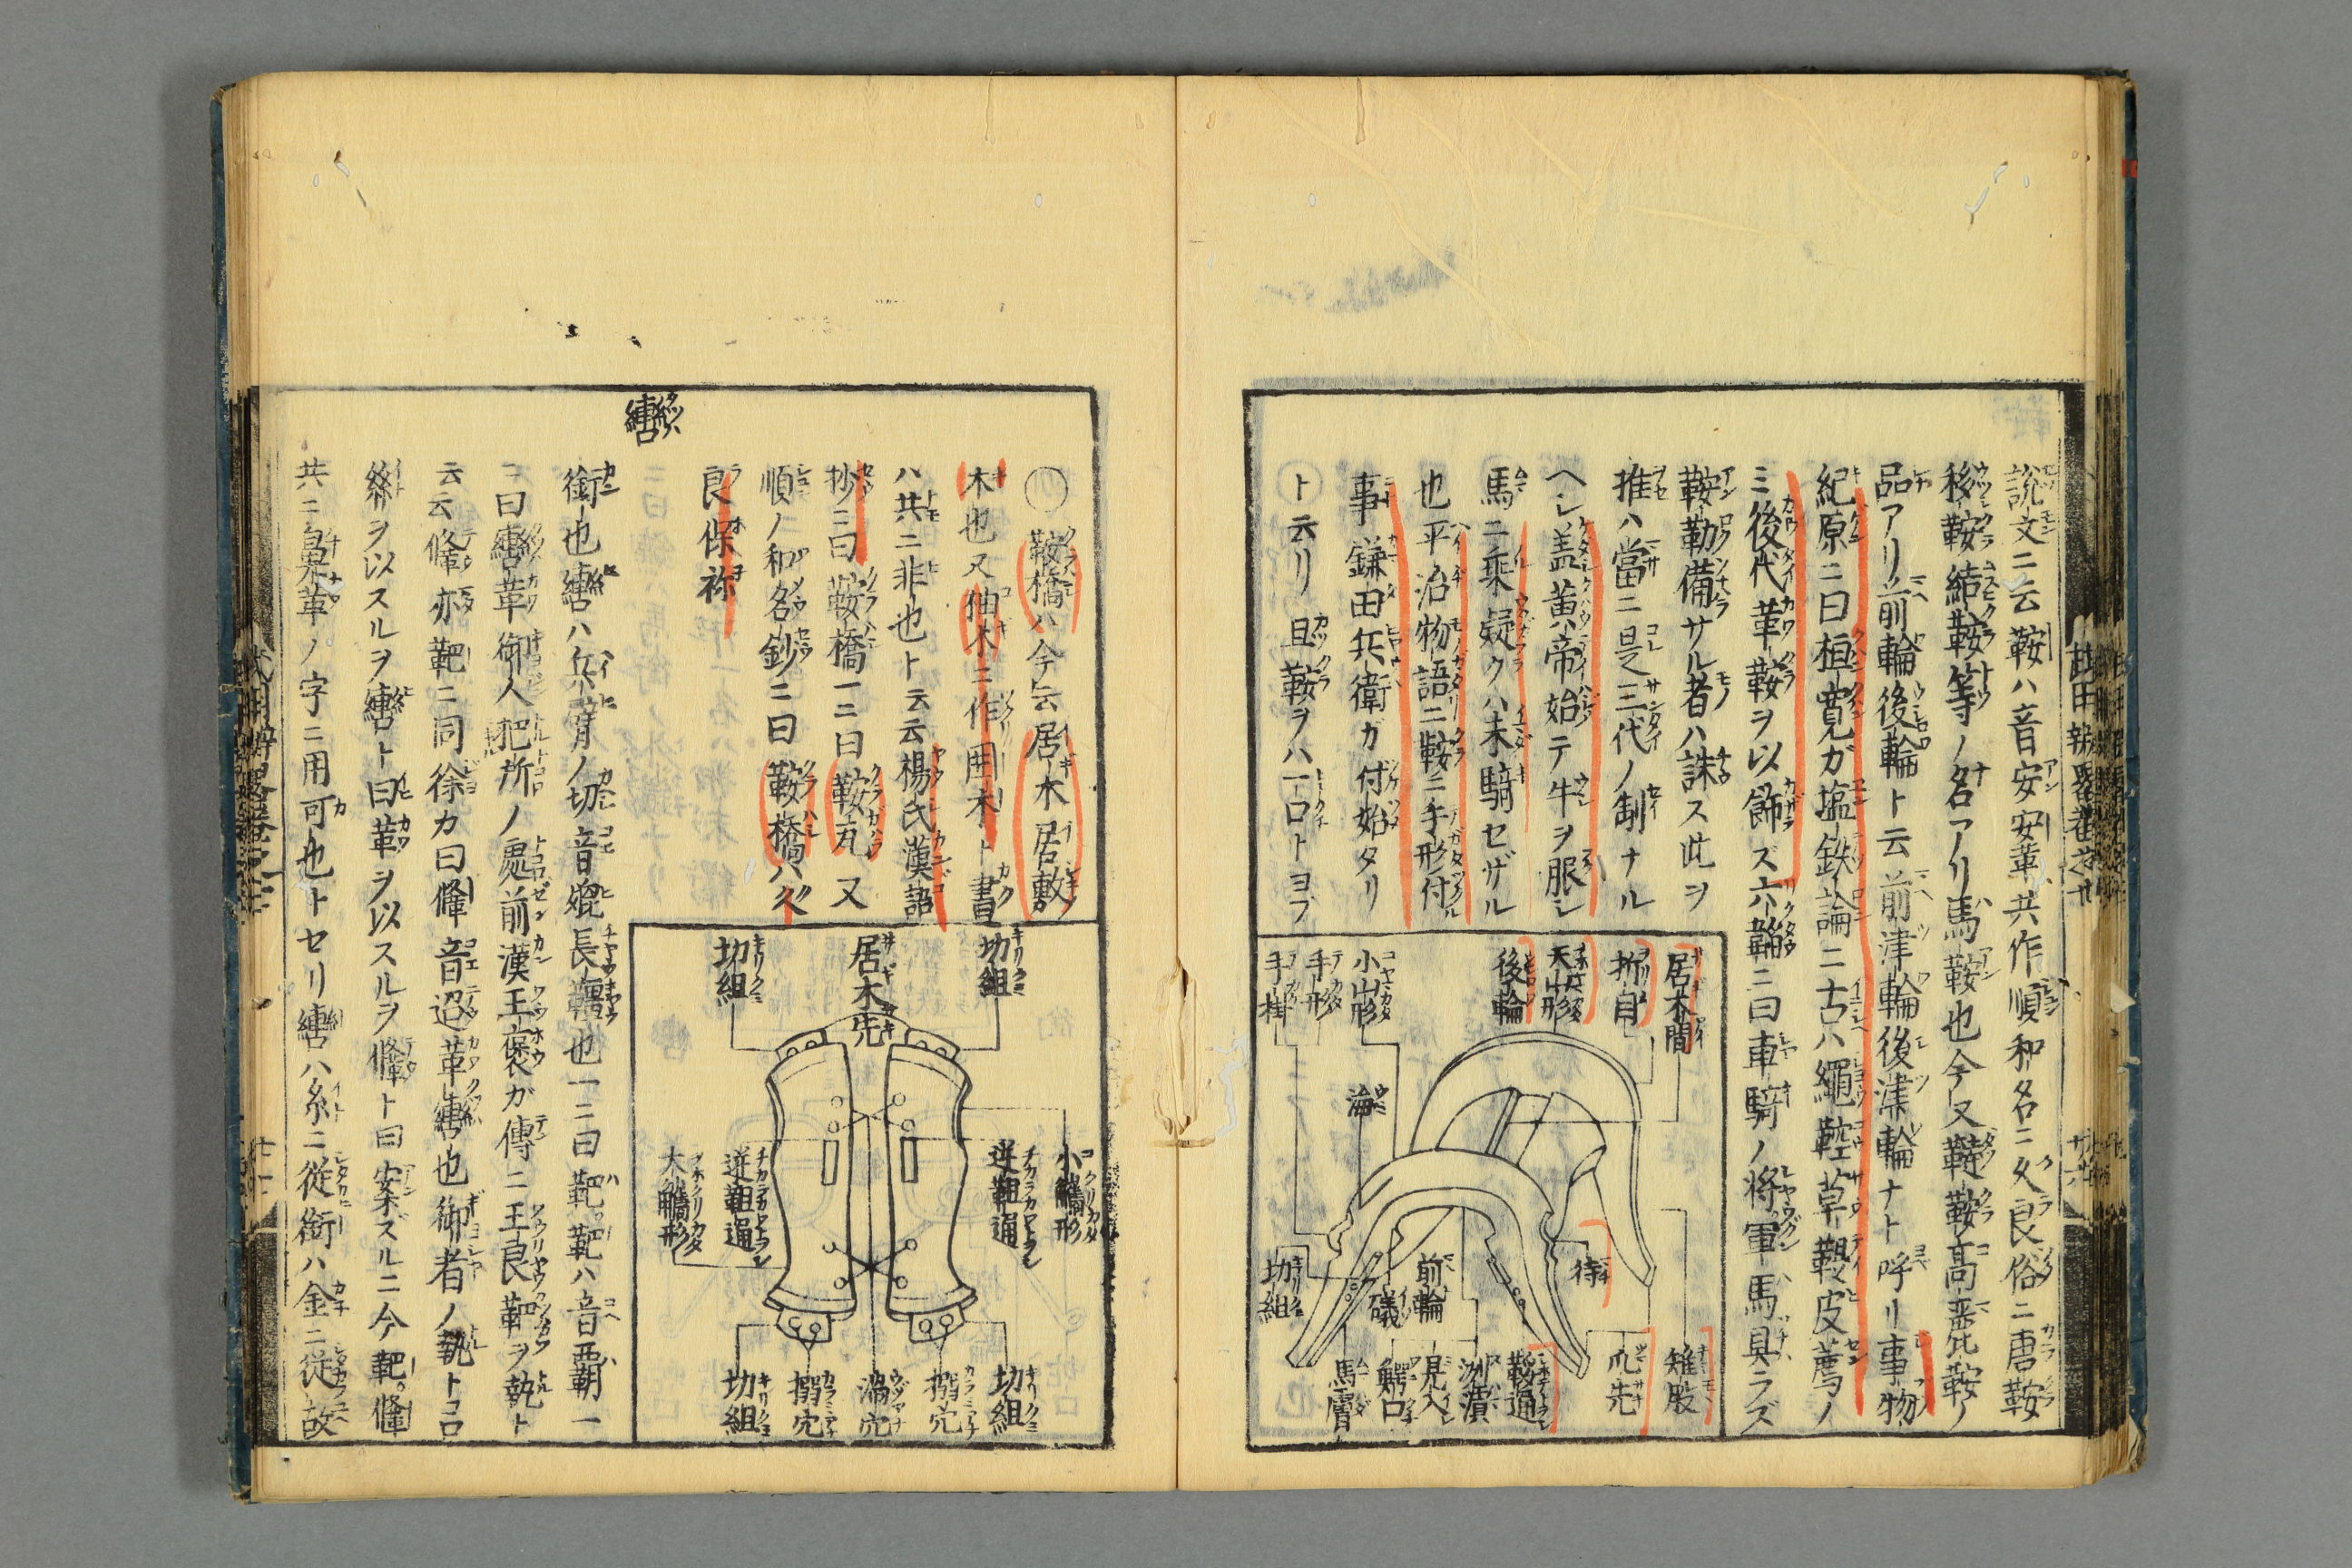 説文ニ云鞍ハ音安安革共作順和名ニ久良俗ニ唐鞍
移鞍結鞍等ノ名アリ馬鞍也今又鞑鞍高麗鞍ノ
品アリ前輪後輪ト云前津輪後津輪ナト呼リ事物
紀原ニ曰桓寛ガ塩鉄論ニ古ハ繩鞚草鞮皮薦ノ
ミ後代革鞍ヲ以飾ズ六韜ニ曰車騎ノ将軍馬具ラズ
鞍勒備サル者ハ誅ス此ヲ
推ハ當ニ是三代ノ制ナル
ヘシ盖黄帝始テ牛ヲ服シ
馬ニ乗疑クハ未騎セザル
也平治物語ニ鞍ニ手形付
事鎌田兵衛ガ付始タリ
ト云リ且鞍ヲハ一口トヨブ
居木間
折自
大山形
後輪
小山形
手形
手掛
海
切組
磯
前輪
待
雉股
爪先
鞍通
洲濱
見入
鰐口
馬膚
〇鞍橋ハ今云居木居敷
木也又
ト書
ハ共ニ非也ト云云楊氏漢語
抄ニ曰鞍橋一ニ曰鞍瓦又
順ノ和名鈔ニ曰鞍橋ハ久
良保祢
切組
居木先
切組
小
形
逆靼通
逆靼通
大
形
切組
穴
穴
穴
切組
轡
銜也轡ハ兵肩ノ切音
長鞿也一ニ曰靶靶ハ音覇一
ニ曰轡革御人把所ノ處前漢王褒ガ傳ニ王良靶ヲ執ト
云云鞗亦靶ニ同徐カ曰鞗音迢革轡也御者ノ執トコロ
絲ヲ以スルヲ轡ト曰革ヲ以スルヲ鞗ト曰案ズルニ今靶鞗
共ニ
革ノ字ニ用可也トセリ轡ハ糸ニ従銜ハ金ニ従故